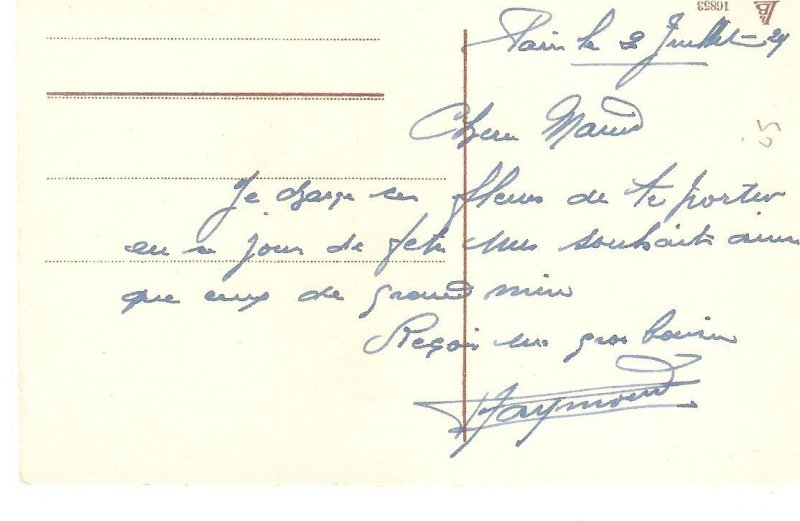 16853
Paris le 2 Juillet - 29
Chere Maud
Je charge ces fleurs de te porter
en ce jour de fete mes souhaits ainsi
que ceux de grand mère
Reçois mes gros baisers
Raymond